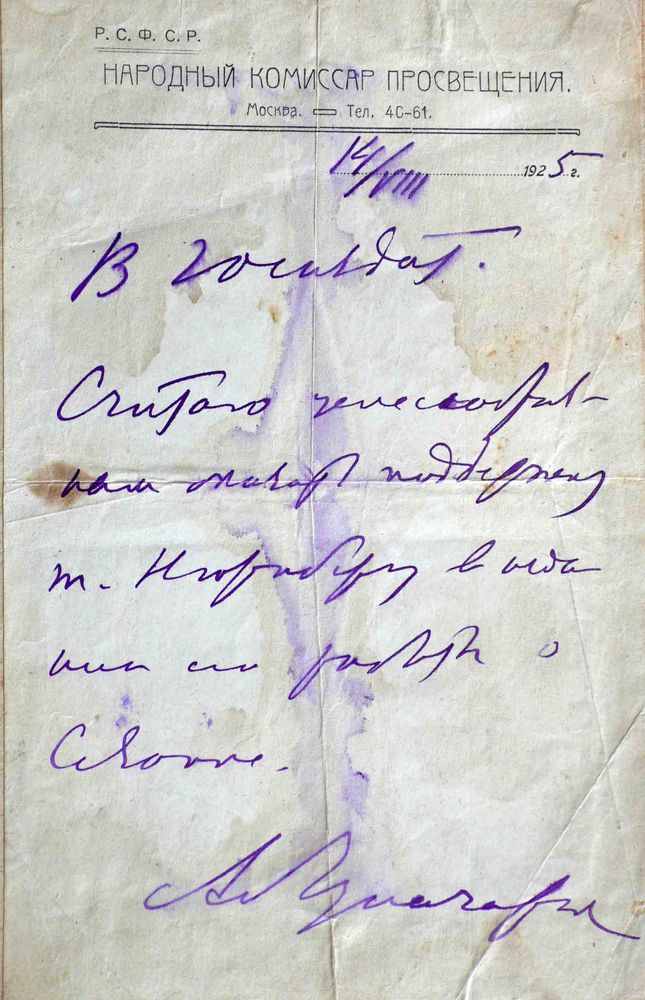 Р. С. Ф. С. Р.
НАРОДНЫЙ КОМИССАР ПРОСВЕЩЕНИЯ.
Москва. Тел. 40-61.
14/VIII 1925 г.
В госиздат.
Считаю целесообраз-
ным оказать поддержку
т. Нюренбергу в изда-
нии его работы о
Сезанне.
А Луначарский